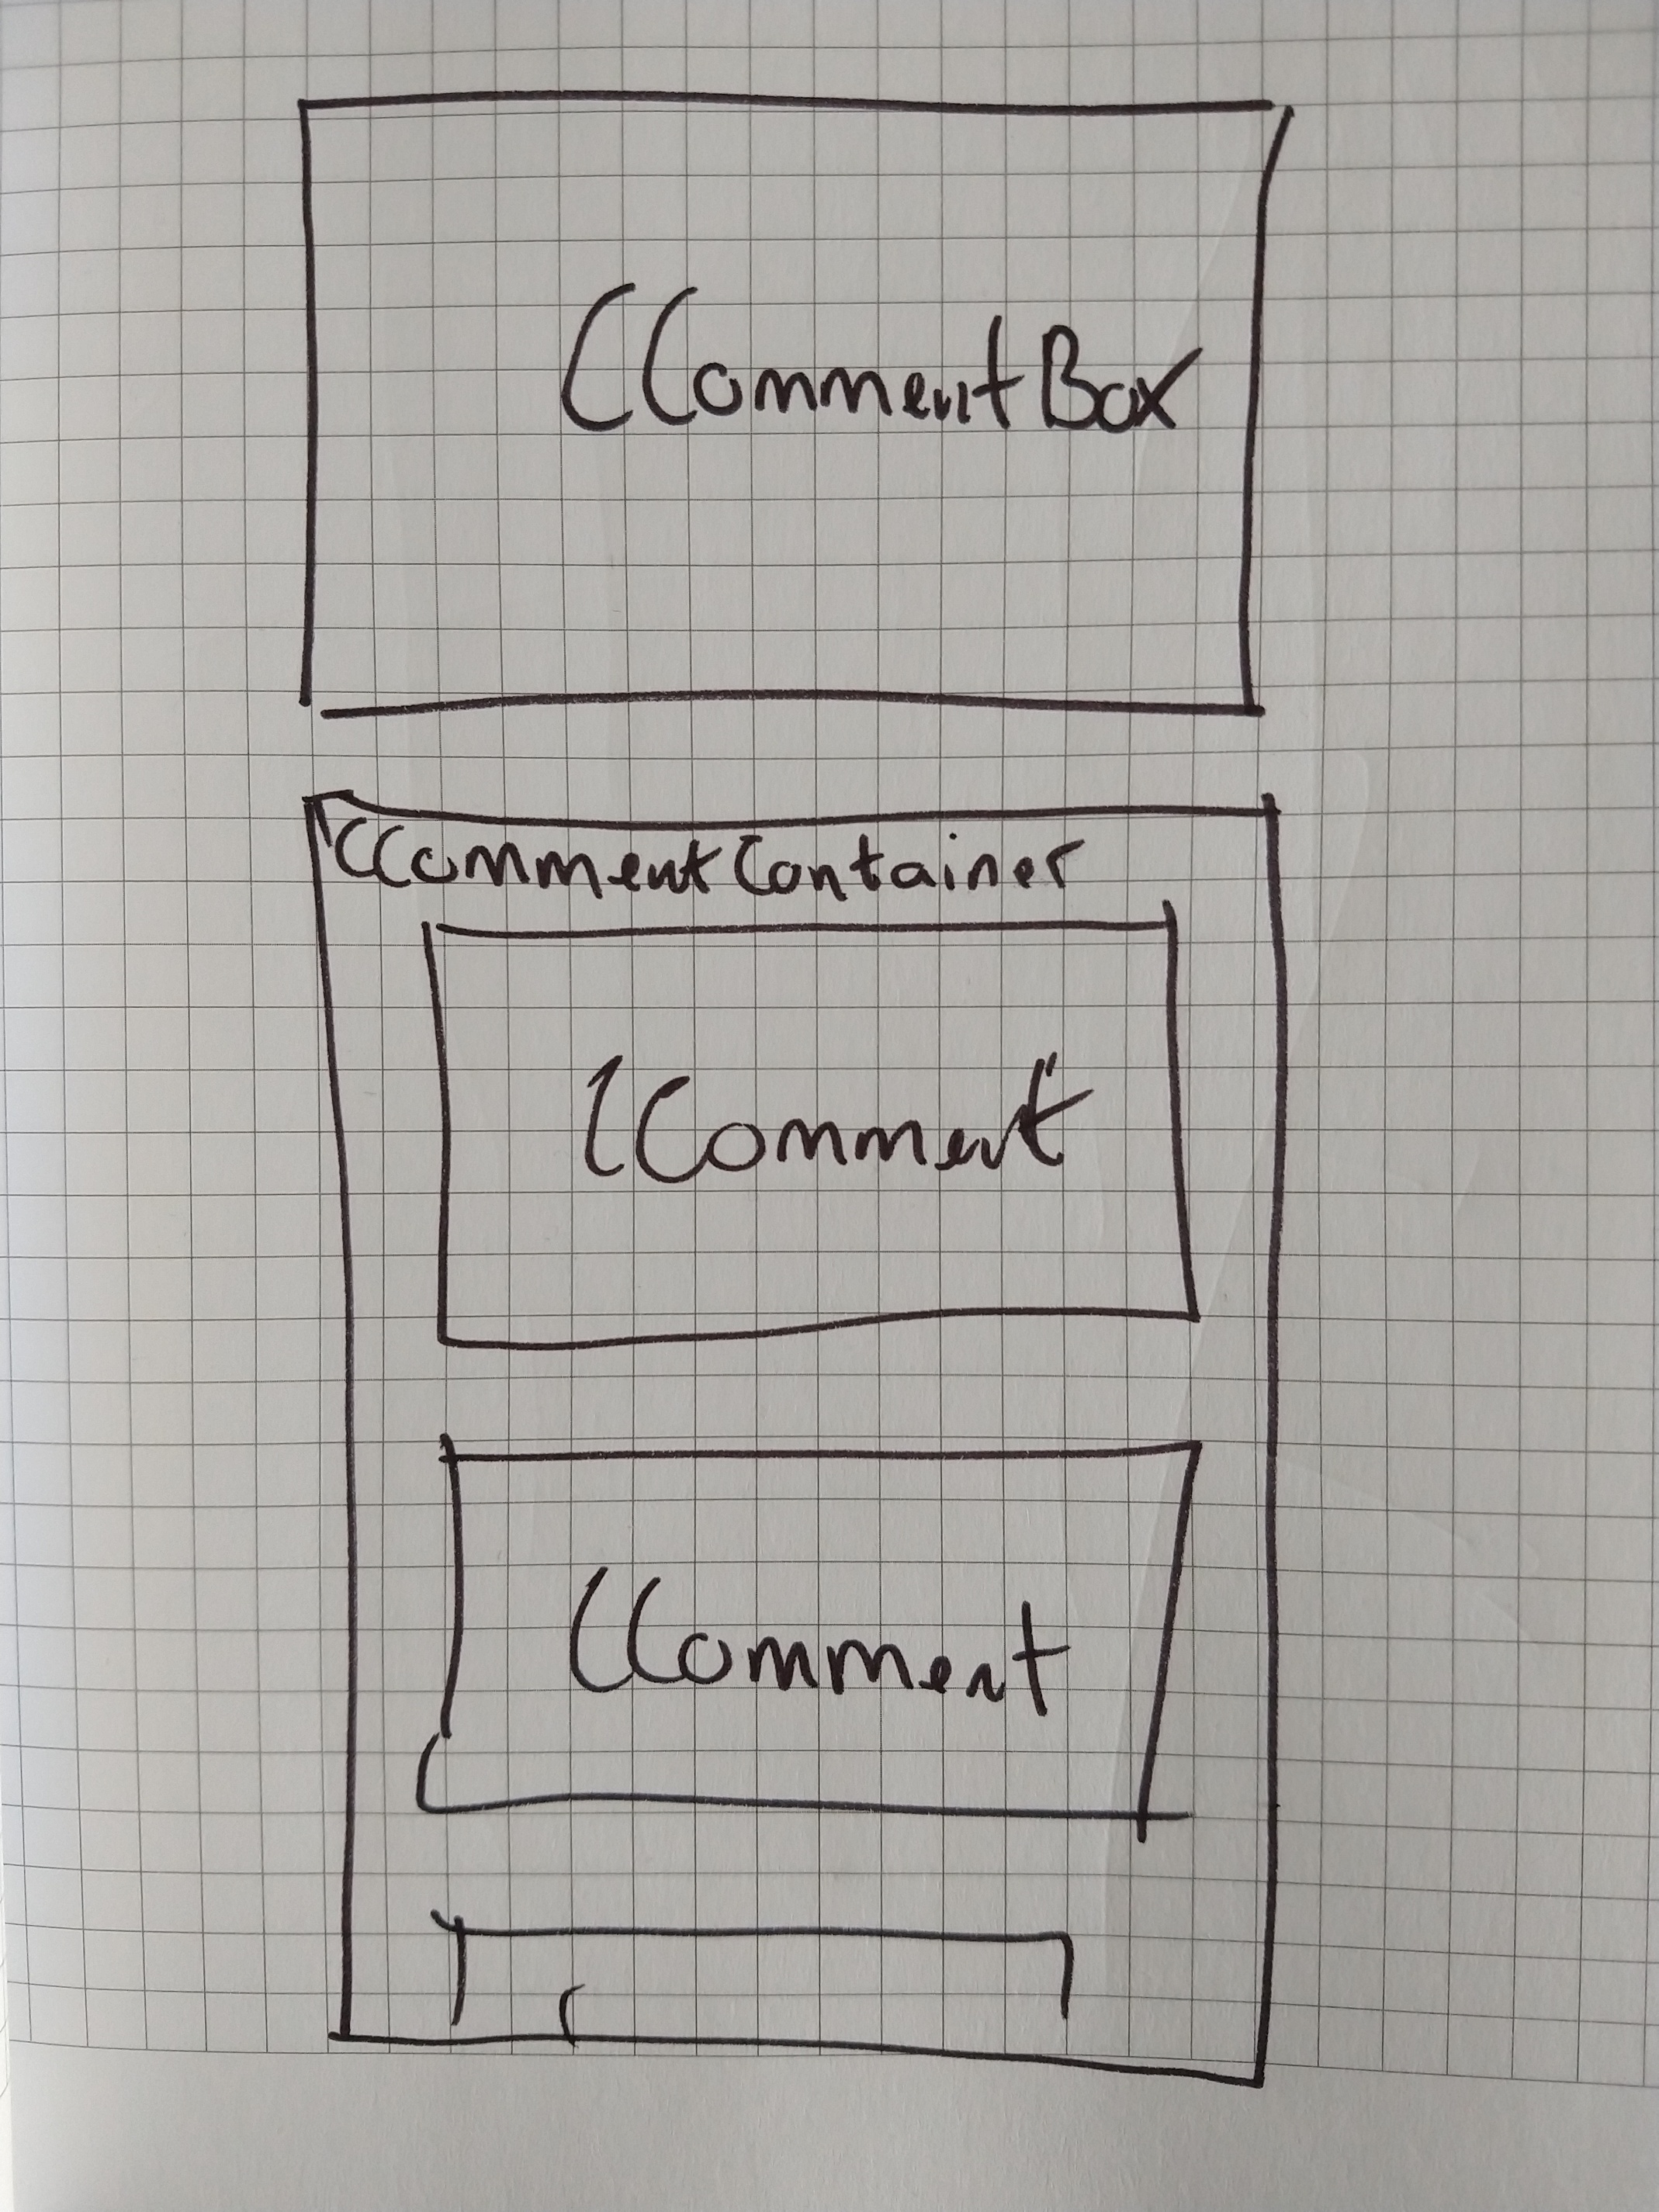 CCommentBox
CCommentContainer
CComment
CComment
C